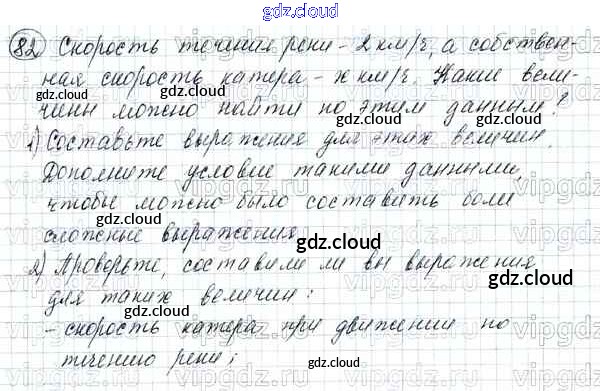 gdz.cloud
82 Скорость течения реки – 2 км/ч, а собствен-
ная скорость катера – x км/ч. Какие вели-
gdz.cloud gdz.cloud
чины можно найти по этим данным?
1) Составьте выражения для этих величин.
Дополните условие такими данными,
gdz.cloud gdz.cloud
чтобы можно было составить боли
сложные выражения
gdz.cloud
2) Проверьте, составили ли вы выражения
для таких величин:
gdz.cloud
– скорость катера при движении по
течению реки;
gdz.cloud